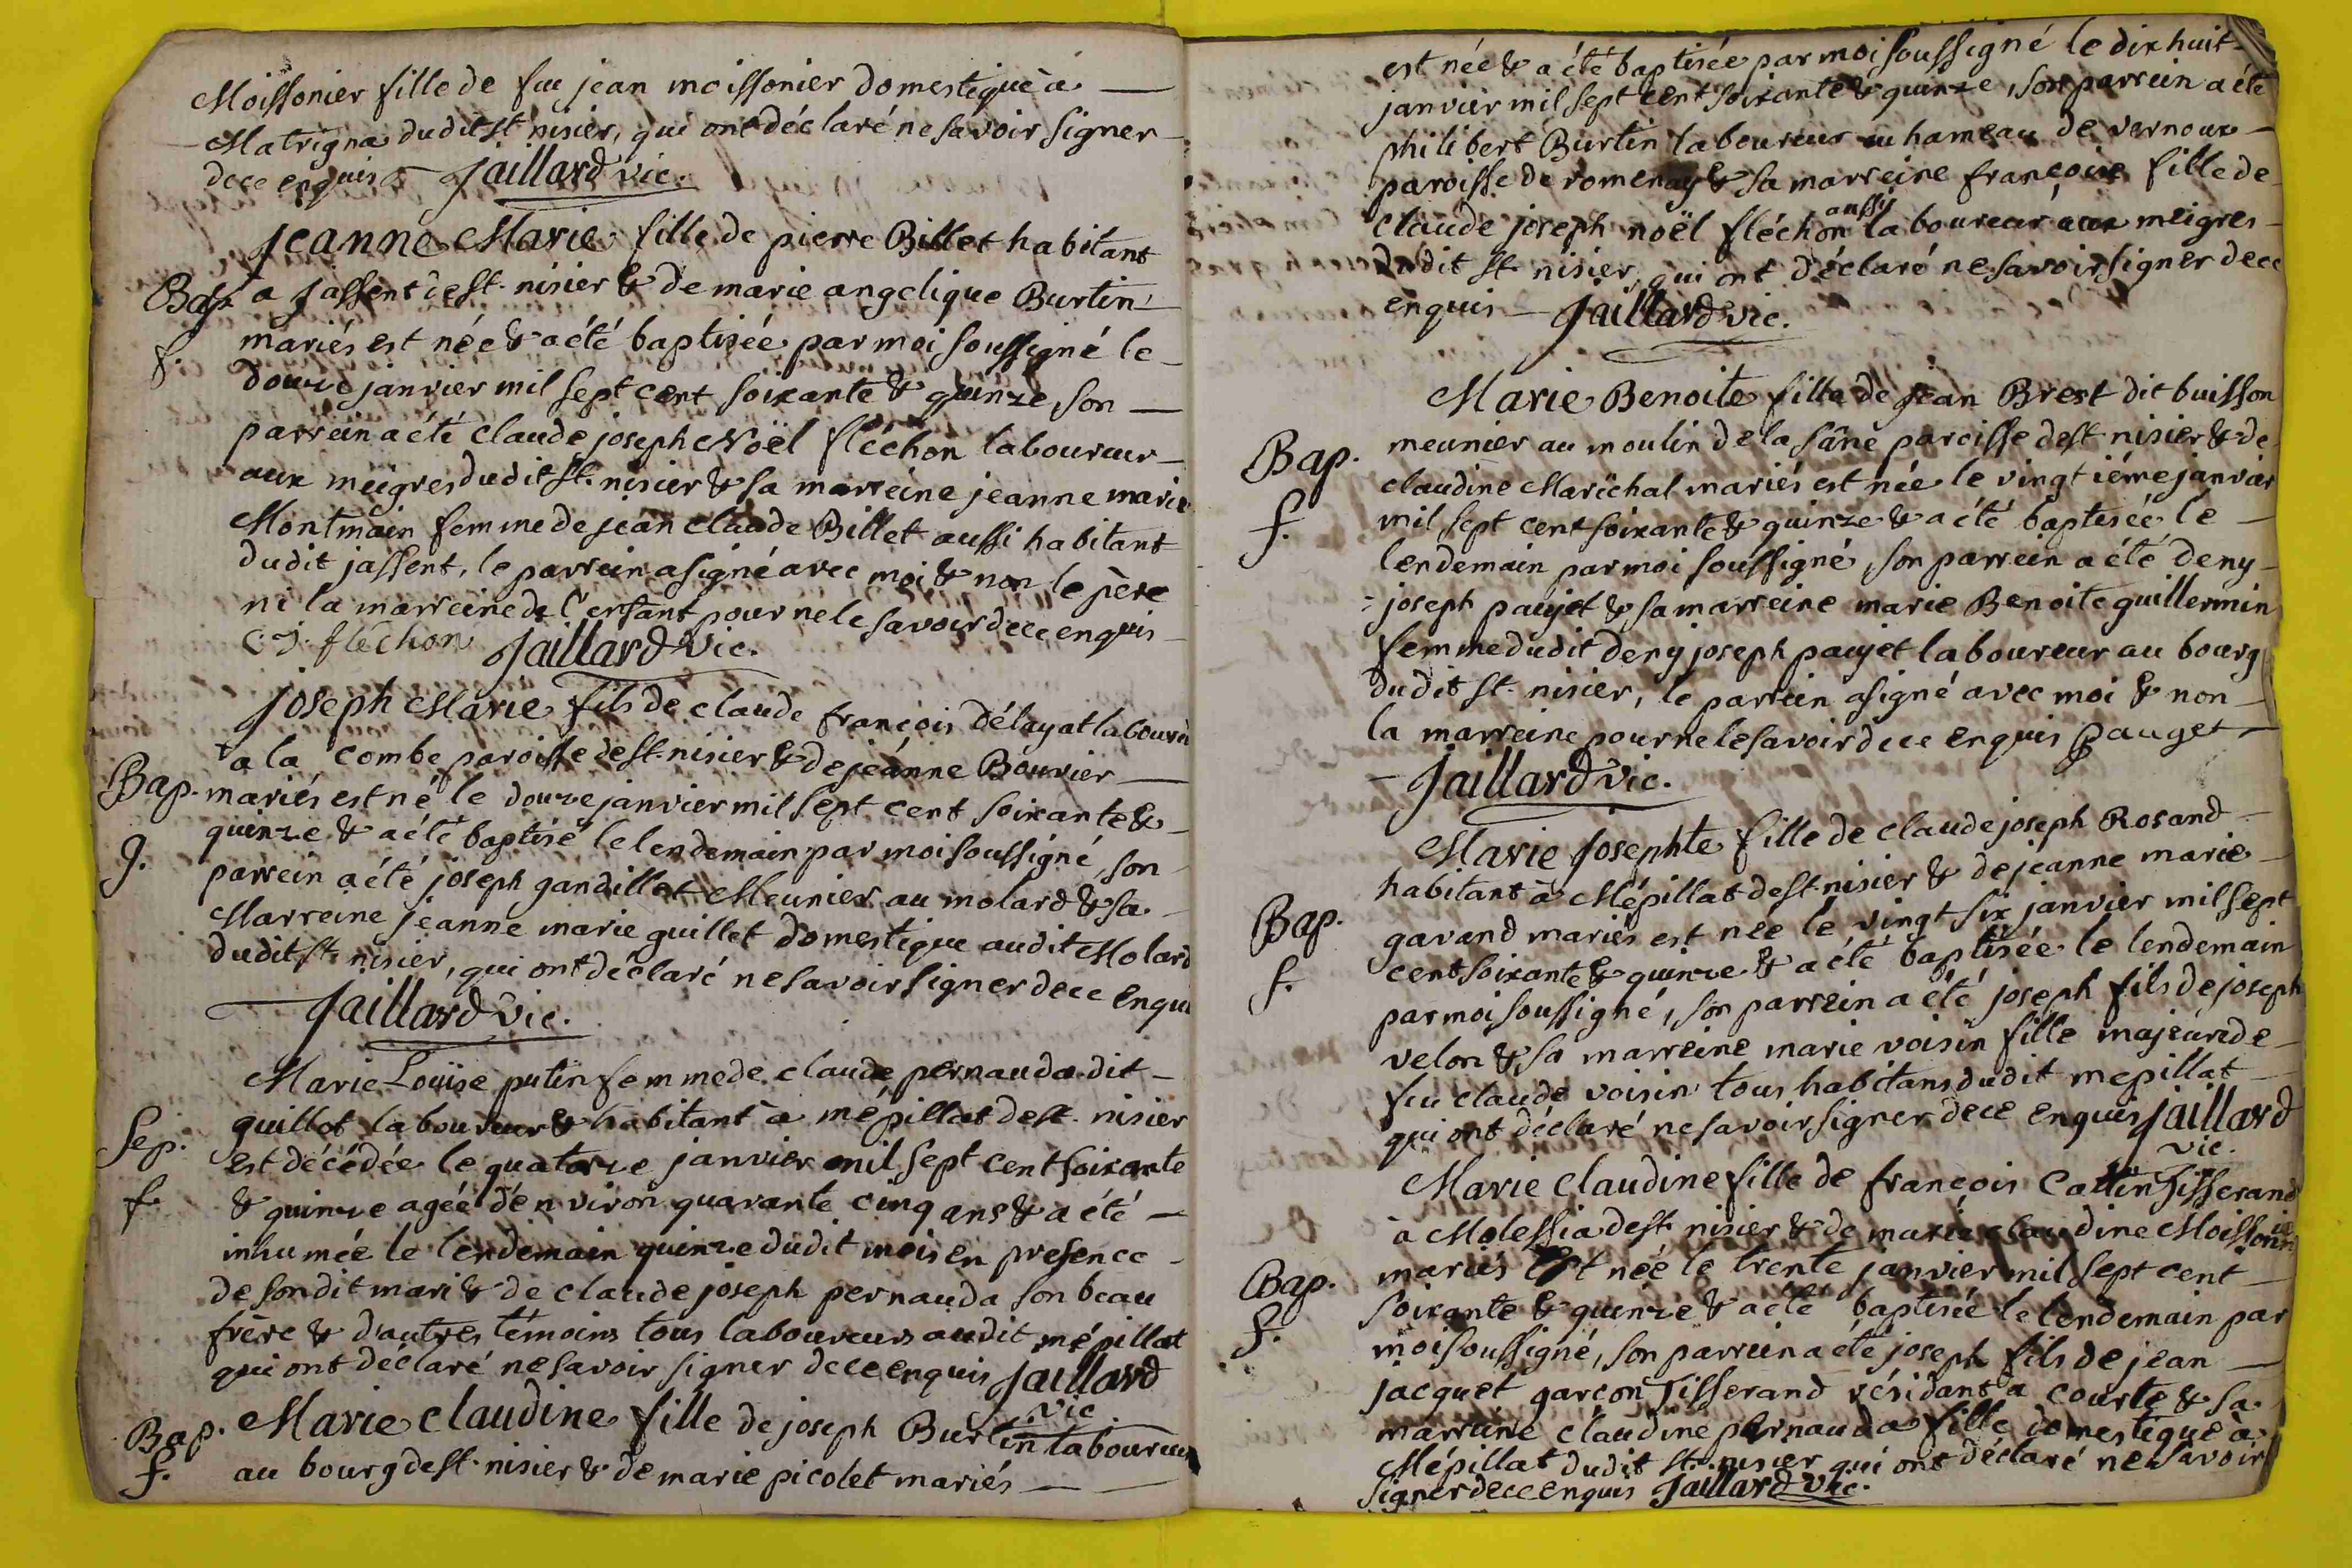 Moissonier fille de feu jean moissonier domestique à
Matrigna dudit st nisier, qui ont déclaré ne savoir signer
de ce enquis Jaillard vic.
jeanne Marie fille de pierre Billet habitant
Bap. a jassent de st. nisier & de marie angelique Burtin
f. mariés est née & a été baptisée par moi soussigné le
douze janvier mil sept cent soixante & quinze, son
parrein a été claude joseph Noël fléchon laboureur
aux meigres dudit st. nisier & sa marreine jeanne marie
Montmain femme de jean claude Billet aussi habitant
dudit jassent, le parrein a signé avec moi & non le père
ni la marreine de l'enfant pour ne le savoir de ce enquis
C. J. fléchon Jaillard vic.
joseph Marie fils de claude françois Délayat laboureur
a la combe paroisse de st. nisier & de jeanne Bouvier
Bap. mariés est né le douze janvier mil sept cent soixante &
quinze & a été baptisé le lendemain par moi soussigné, son
g. parrein a été joseph gandillet Meunier au molard & sa
Marreine jeanne marie guillet domestique audit Molard
dudit st. nisier, qui ont déclaré ne savoir signer de ce enquis
Jaillard vic.
Marie Louise putin femme de claude pernauda dit
guillot laboureur & habitant à mépillat de st. nisier
Sep. est décédée le quatorze janvier mil sept cent soixante
f. & quinze agée d'environ quarante cinq ans & a été
inhumée le lendemain quinze dudit mois en presence
de son dit mari & de claude joseph pernauda son beau
frère & d'autres témoins tous laboureurs audit mépillat
qui ont déclaré ne savoir signer de ce enquis Jaillard
vic
Bap. Marie claudine fille de joseph Burtin laboureur
f. au bourg de st. nisier & de marie picolet mariés
est née & a été baptisée par moi soussigné le dix huit
janvier mil sept cent soixante & quinze, son parrein a été
philibert Burtin laboureur au hameau de vernoux
paroisse de romenay & sa marreine françoise fille de
claude joseph noël fléchon aussy laboureur aux meigres
dudit st. nisier, qui ont déclaré ne savoir signer de ce
enquis Jaillard vic.
Marie Benoite fille de jean Brest dit buisson
Bap. meunier au moulin de la sâne paroisse de st nisier & de
claudine Maréchal mariés est née le vingtiéme janvier
f. mil sept cent soixante & quinze & a été baptisée le
lendemain par moi soussigné, son parrein a été deny
joseph paujet & sa marreine marie Benoite guillermin
femme dudit deny joseph paujet laboureur au bourg
dudit st. nisier, le parrein a signé avec moi & non
la marreine pour ne le savoir de ce enquis Pauget
Jaillard vic.
Marie josephte fille de claude joseph Rosand
habitant à Mépillat de st. nisier & de jeanne marie
Bap. gavand mariés est née le vingt six janvier mil sept
f. cent soixante & quinze & a été baptisée le lendemain
par moi soussigné, son parrein a été joseph fils de joseph
velon & sa marreine marie voisin fille majeure de
feu claude voisin tous habitans dudit mepillat
qui ont déclaré ne savoir signer de ce enquis Jaillard
vic.
Marie claudine fille de françois Cattin Tisserand
à Molessia de st. nisier & de marie claudine Moissonier
Bap. mariés est née le trente janvier mil sept cent
f. soixante & quinze & a été baptisée le lendemain par
moi soussigné, son parrein a été joseph fils de jean
jacquet garçon Tisserand résidant a courte & sa
marreine claudine pernauda fille domestique à
Mépillat dudit st. nisier qui ont déclaré ne savoir
signer de ce enquis Jaillard vic.